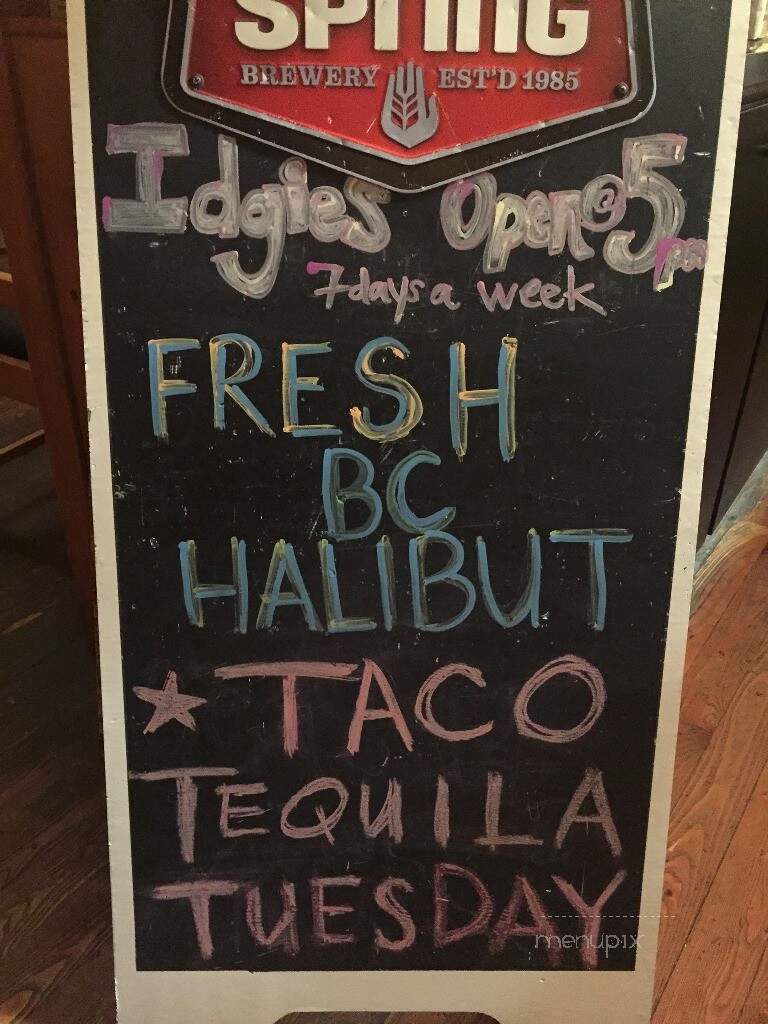 SPRING
BREWERY EST'D 1985
Idgies Open @ 5 pm
7 days a week
FRESH
BC
HALIBUT
★ TACO
TEQUILA
TUESDAY
menupix